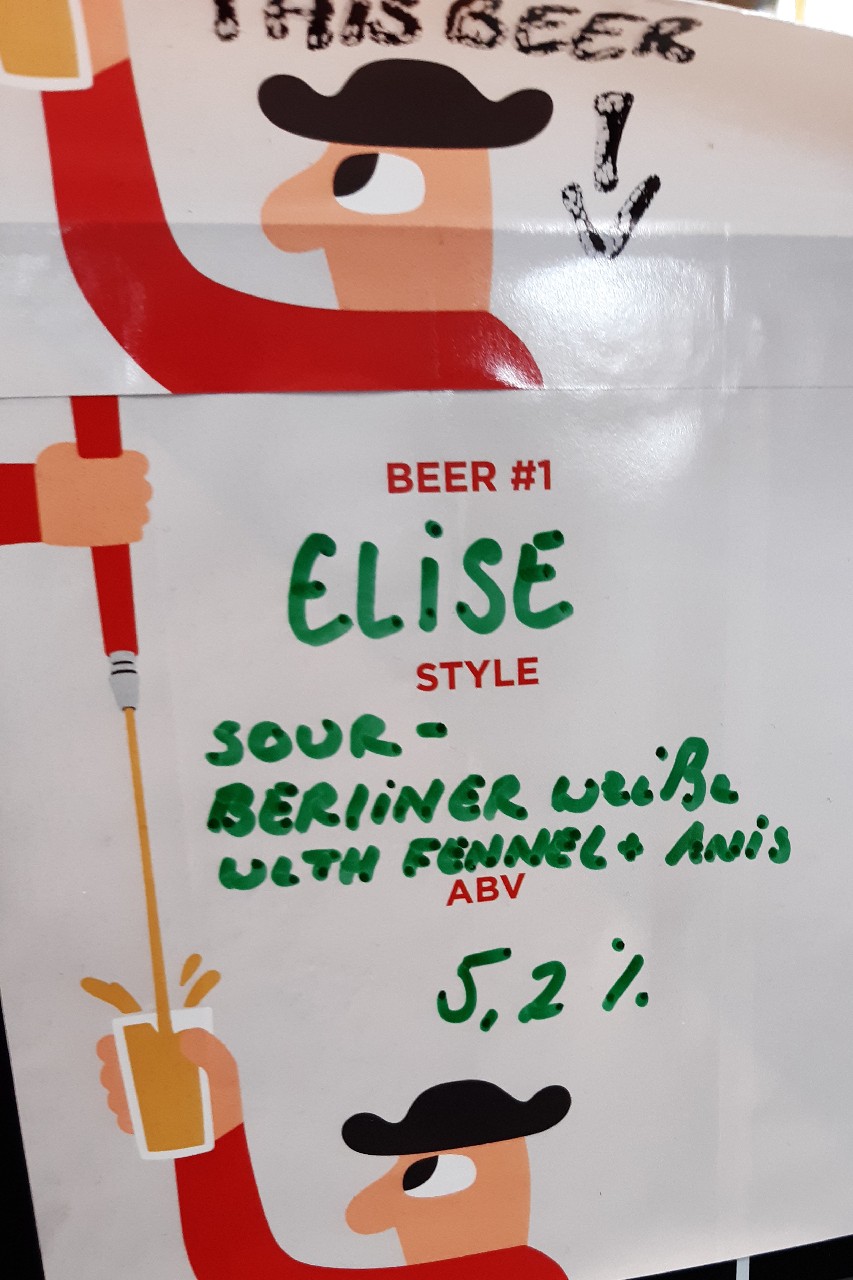 THIS BEER
BEER #1
ELiSE
STYLE
SOUR-
BERliNER weiße
WITH FENNEL + ANiS
ABV
5,2 %